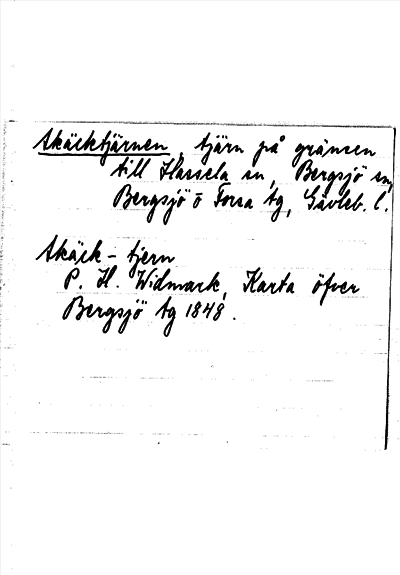 Skäcktjärnen, tjärn på gränsen
till Hassela sn, Bergsjö sn,
Bergsjö o Forsa tg, Gävleb. l.
Skäck-tjern
P. H. Widmark, Karta öfver
Bergsjö tg 1848.